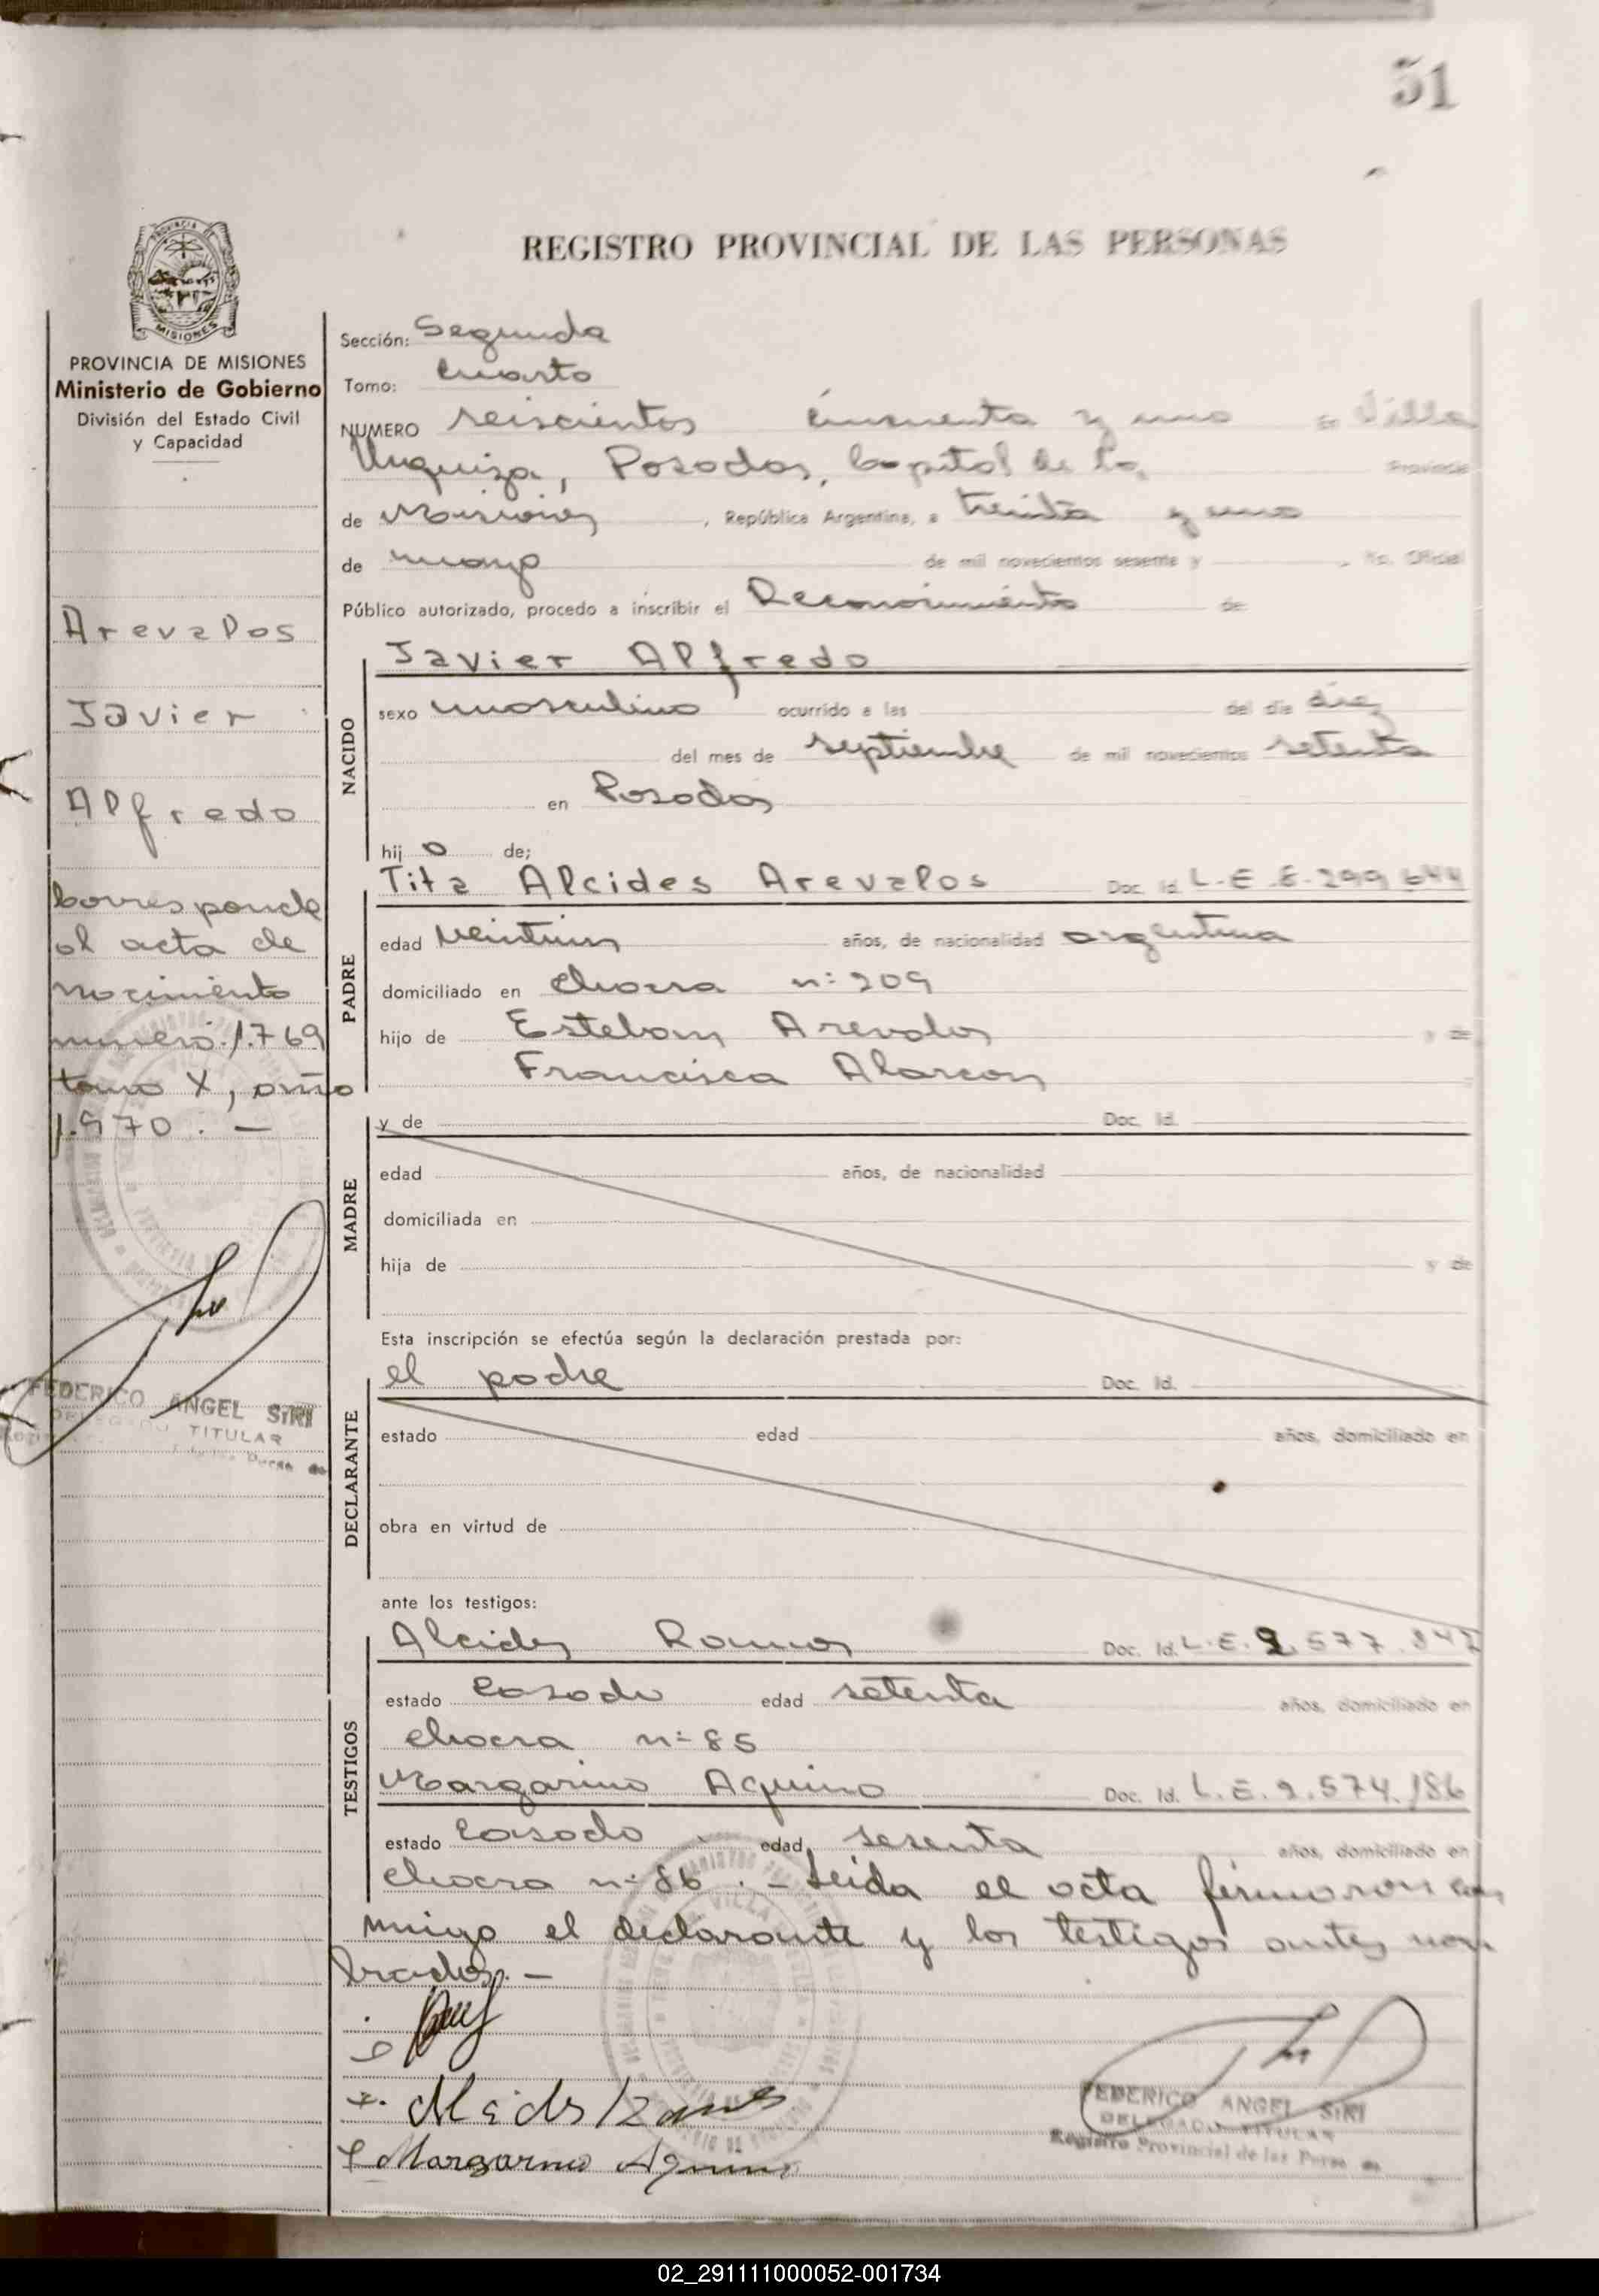 51
REGISTRO PROVINCIAL DE LAS PERSONAS
MISIONES
PROVINCIA DE MISIONES
Ministerio de Gobierno
División del Estado Civil
y Capacidad
Arevalos
Javier
Alfredo
Corresponde
al acta de
nacimiento
número: 1.769
tomo X, año
1.970. —
FEDERICO ANGEL SIRI
DELEGADO TITULAR
Sección: Segunda
Tomo: Cuarto
NUMERO seiscientos cincuenta y uno En Villa
Urquiza, Posadas, Capital de la Provincia
de Misiones, República Argentina, a treinta y uno
de mayo de mil novecientos sesenta y , Yo, Oficial
Público autorizado, procedo a inscribir el Reconocimiento de
Javier Alfredo
NACIDO
sexo masculino ocurrido a las del día diez
del mes de septiembre de mil novecientos setenta
en Posadas
hijo de;
Tita Alcides Arevalos Doc. Id. L.E 8.299.644
PADRE
edad años, de nacionalidad argentina
domiciliado en chacra n: 209
hijo de Esteban Arevalos y de
Francisca Alarcon
MADRE
y de Doc. Id.
edad años, de nacionalidad
domiciliada en
hija de y de
Esta inscripción se efectúa según la declaración prestada por:
el padre Doc. Id.
DECLARANTE
estado edad años, domiciliado en
obra en virtud de
ante los testigos:
Alcides Ramos Doc. Id. L.E. 2.577.
TESTIGOS
estado Casado edad setenta años, domiciliado en
chacra n: 85
Margarino Aquino Doc. Id. L.E. 2.574.186
estado Casado edad sesenta años, domiciliado en
chacra n: 86. — Leida el acta firmaron con
migo el declarante y los testigos antes nom
brados. —
Alcides Ramos
Margarino Aquino
FEDERICO ANGEL SIRI
DELEGADO TITULAR
Registro Provincial de las Personas
02_291111000052-001734